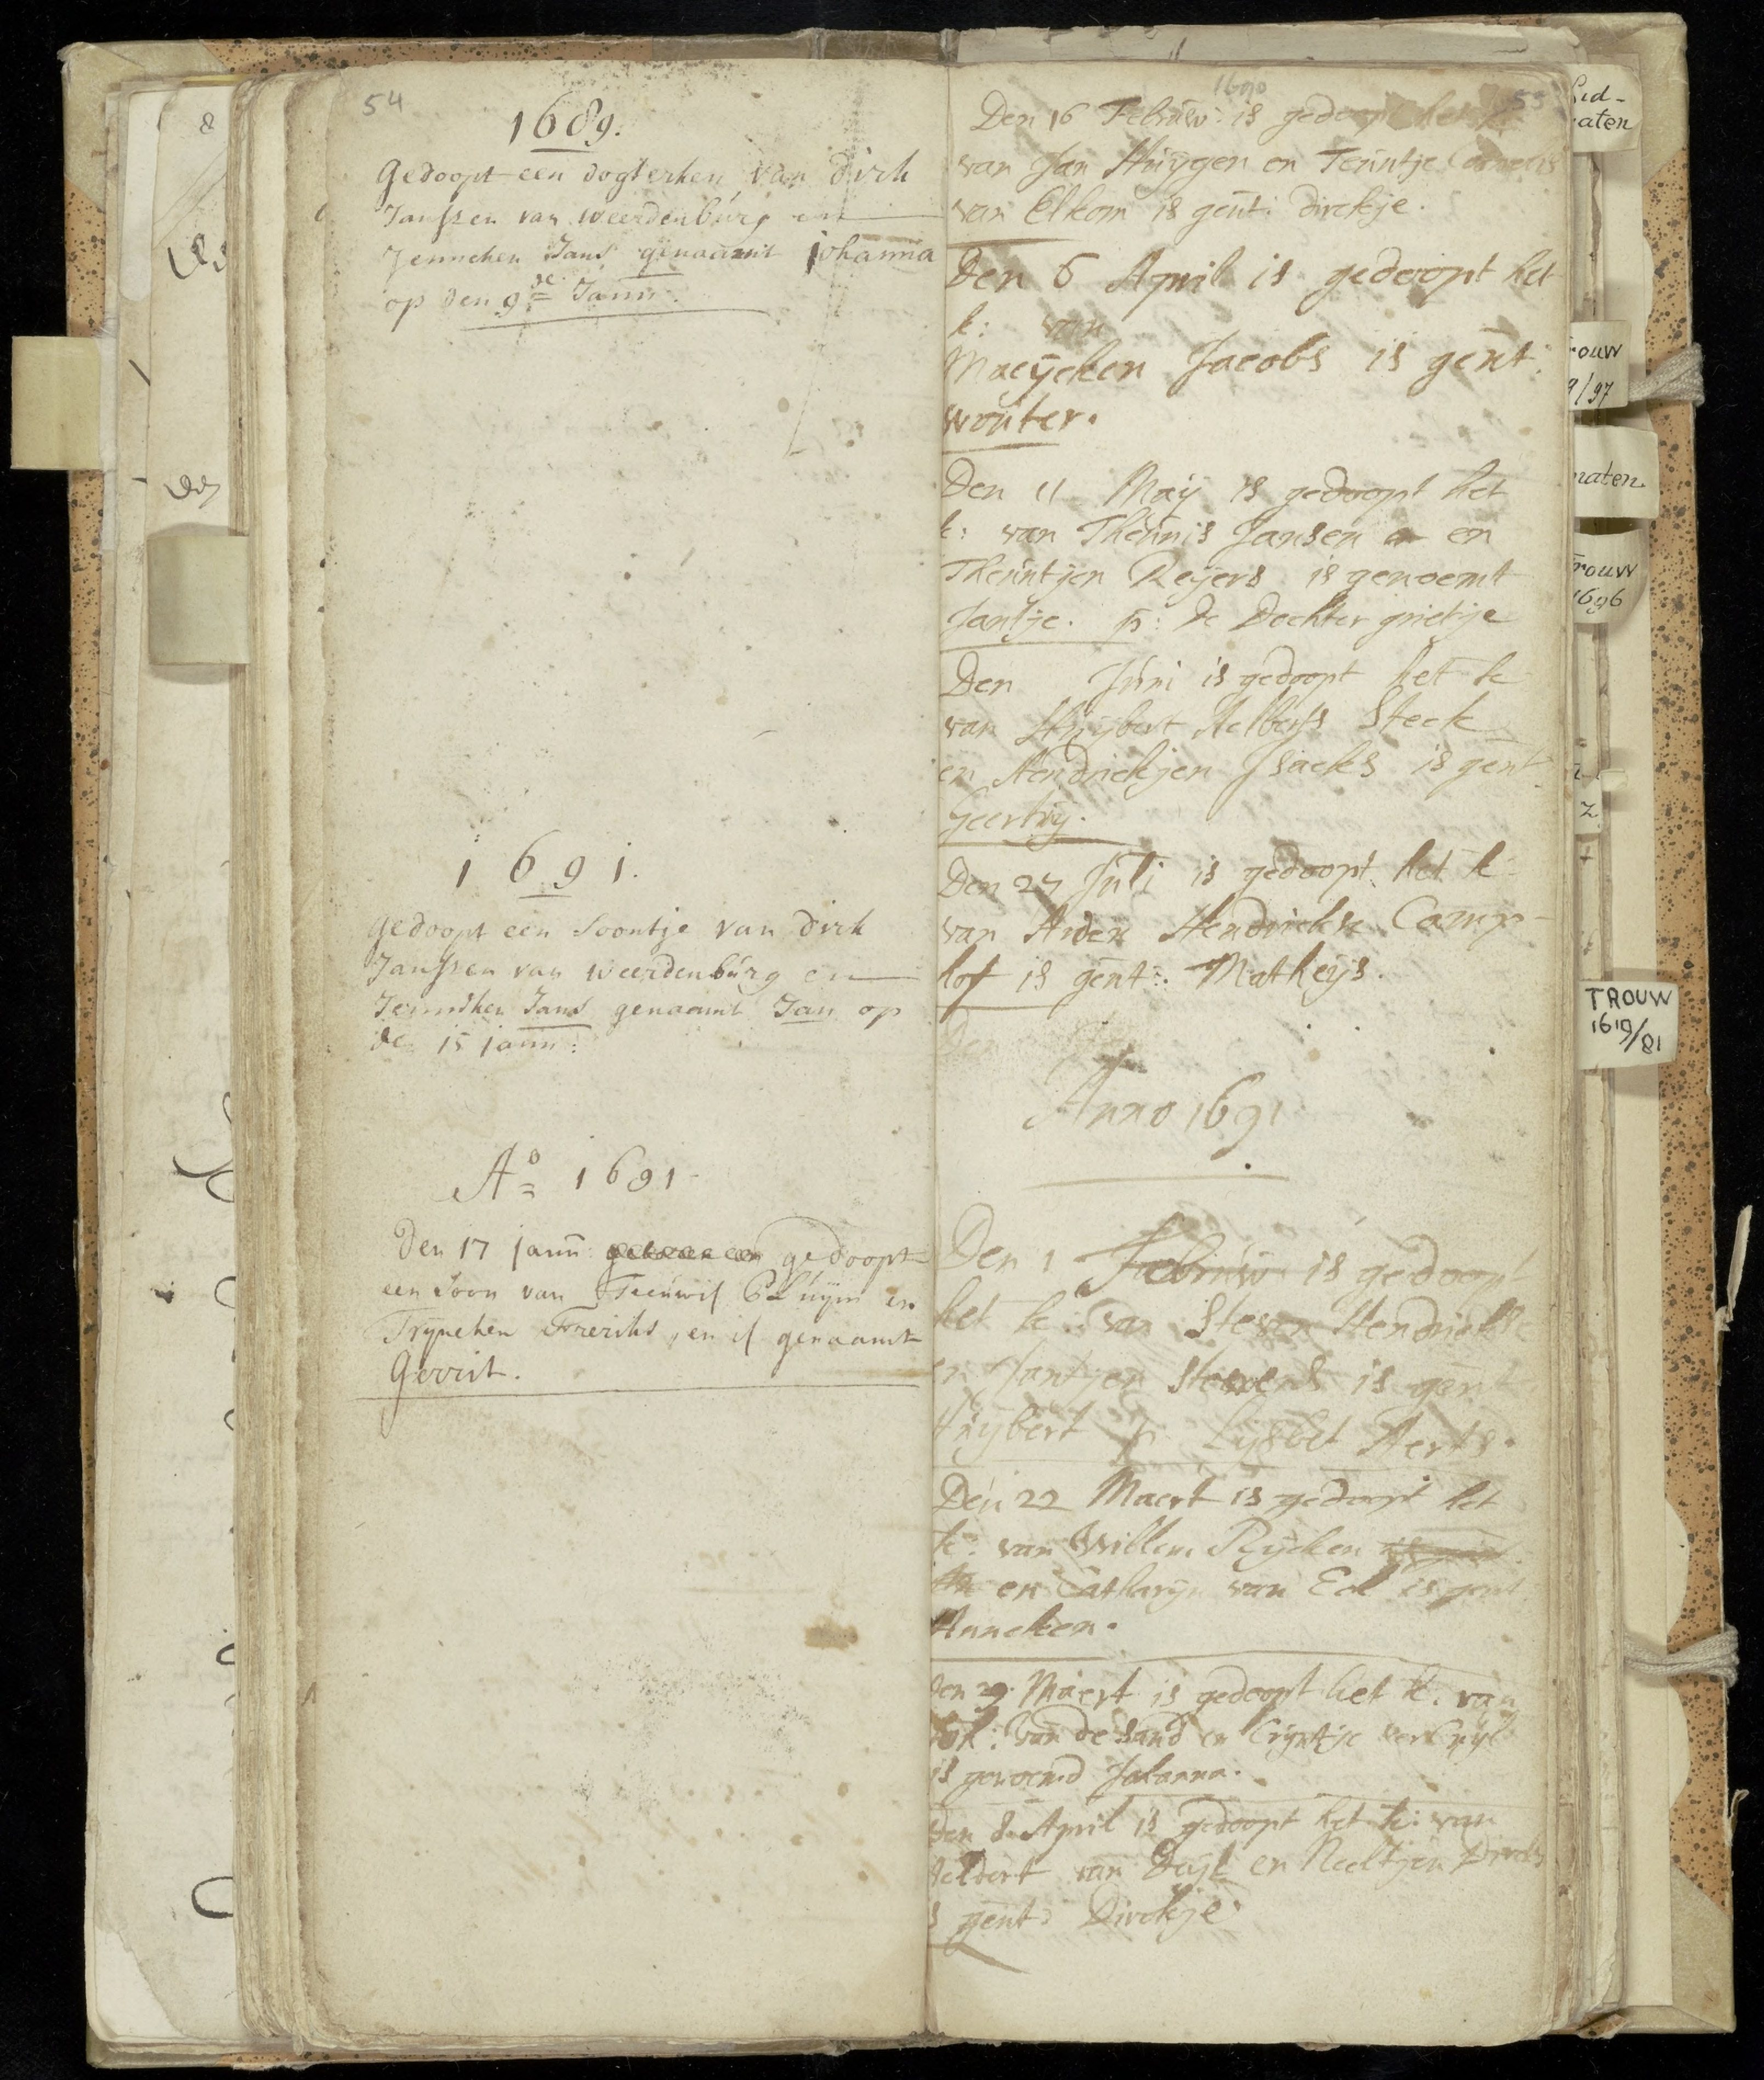 54
1689.
Gedoopt een dogterken van Dirk
Janssen van weerdenburg en
Jenneken Jans genaamt johanna
op den 9de Jann:
1691.
gedoopt een Soontje van Dirk
Janssen van weerdenburg en
Jenneken Jans genaamt Jan op
de 15 jann:
Ao 1691-
Den 17 jann: gedoopt
een Soon van Teeuwis Pluijm en
Trijnken Frericks, en is genaamt
Gerrit.
1690
55
Den 16 Februw: is gedoopt het k
van Jan Huijgen en Teuntje Cornelis
van Elkom is gent: dirckje.
Den 6 April is gedoopt het
k: van
Maeijcken Jacobs is gent:
wouter.
Den 11 Maij is gedoopt het
k: van Theunis Jansen en
Theuntjen Reijers is genoemt
Jantje. p: de Dochter grietje
Den Juni is gedoopt het k
van Huijbert Aelberts Steek
en Hendrickjen Isacks is gent
Geertruij.
Den 27 Juli is gedoopt het k:
van Arien Hendrickse Camp-
hof is gent: Matheijs.
Anno 1691
Den 1 Februw: is gedoopt
het k: van Steven Hendrickse
en Jantjen Stevens is gent
Huijbert p: Lijsbet Aerts.
Den 22 Maert is gedoopt het
k: van Willem Rijcken
en Catharijn van Eck is gent
Anneken.
Den 29 Maert is gedoopt het k. van
van de Sand en Crijntje
is genoemd Johanna.
Den 8 April is gedoopt het k: van
van Duijl en Neeltjen Dircks
is gent: Dirckje
Lid-
maten
Trouw
maten
Trouw
1696
TROUW
1619/81